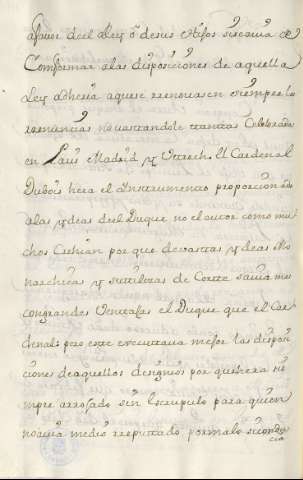 afavor del Rey ô de sus Hijos si se avia de
Conformar alas disposiciones de aquella
Ley adheria aquese renovasen siempre las
renuncias no vastandole tantas Celebradas
en Paris Madrid y Utrech. El Cardenal
Dubois hera el Instrumento proporcionado
alas ydeas del Duque no el autor como mu
chos Crehian por que de vastas ydeas Mo
narchicas y sutilezas de Corte savia mas
congrandes Ventajas el Duque que el Car
denal: pero este executava mejor las disposi
ciones de aquellos designios por que hera si
empre arrojado sin Escrupulo para quien
no avia medio reputado por malo siconducia